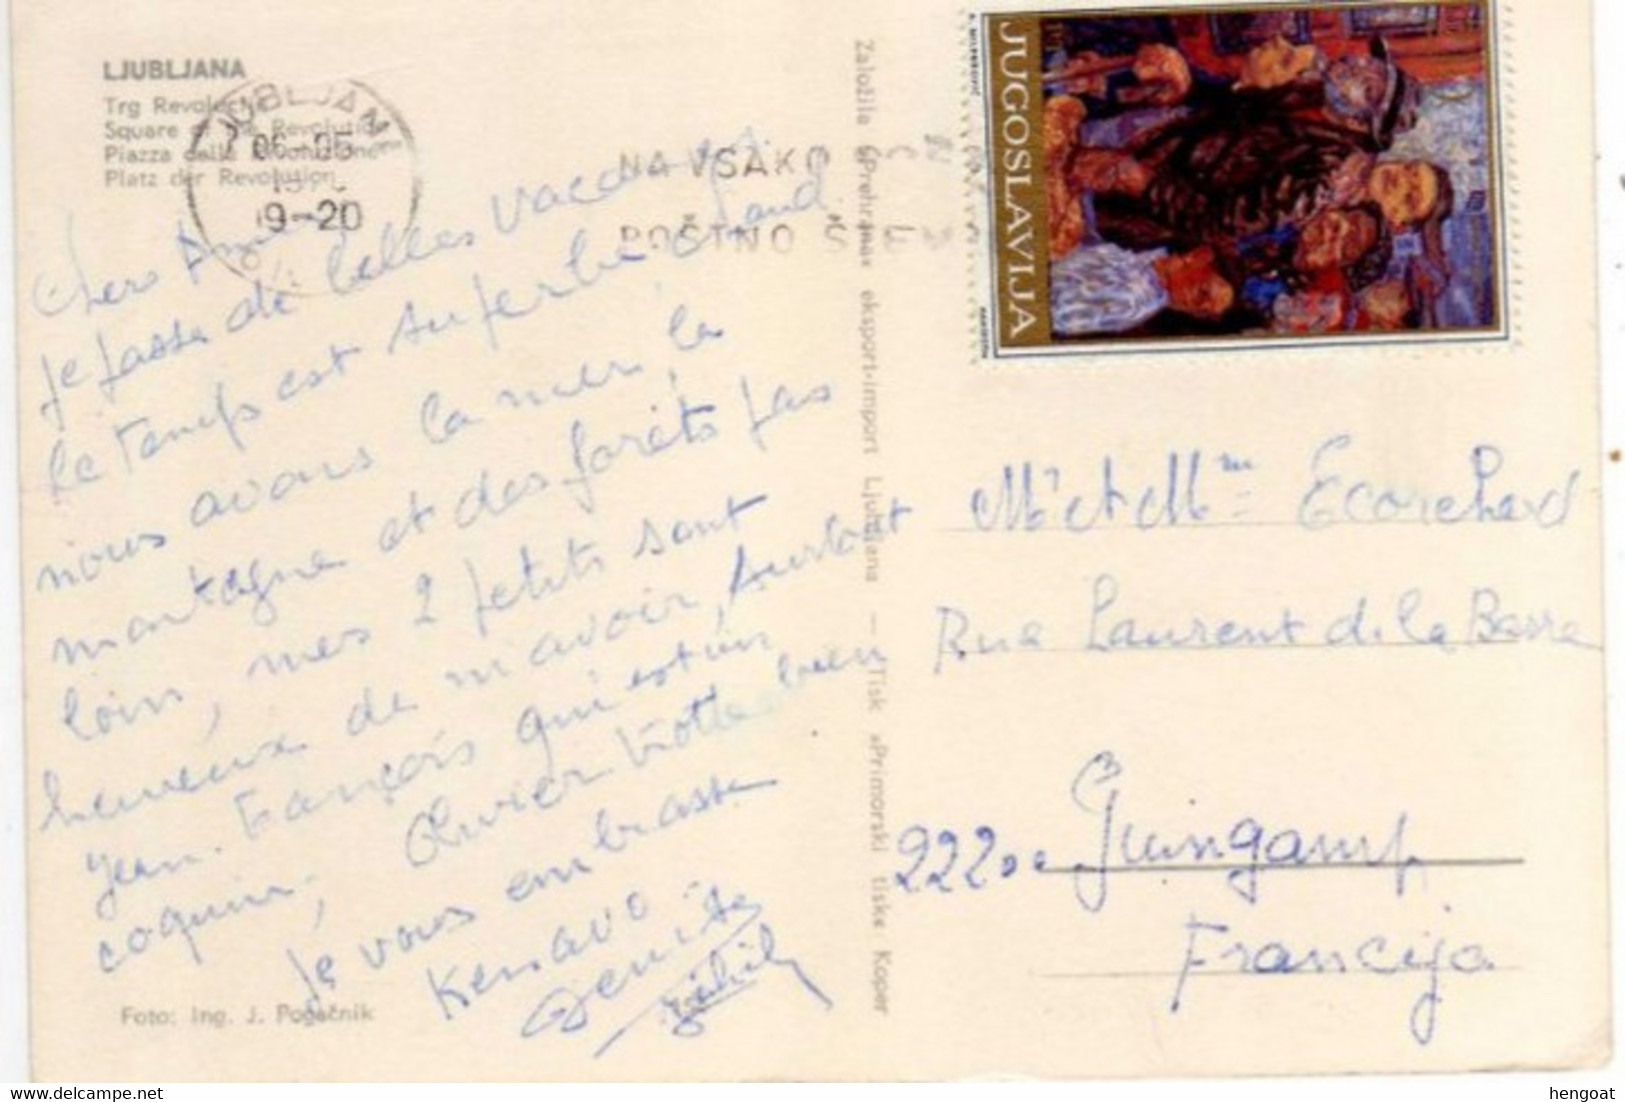 LJUBLJANA
Trg Revolucije
Square of the Revolution
Piazza della Rivoluzione
Platz der Revolution
LJUBLJANA
06-05
19-20
NA VSAKO
POŠTNO
Chers Amis
je passe de belles vacances
le temps est superbe
nous avons la mer, la
montagne et des forêts pas
loin, mes 2 petits sont
heureux de m'avoir, surtout
Jean-François qui est un
coquin, Olivier trotte bien
Je vous embrasse
Kenavo
Denise
Foto: ing. J. Pogačnik
Založila »Prehrana« eksport-import Ljubljana — Tisk »Primorski tisk« Koper
JUGOSLAVIJA
Mr et Mme Ecorchard
Rue Laurent de la Barre
22200 Guingamp
Francija
hengoat
https://www.delcampe.net